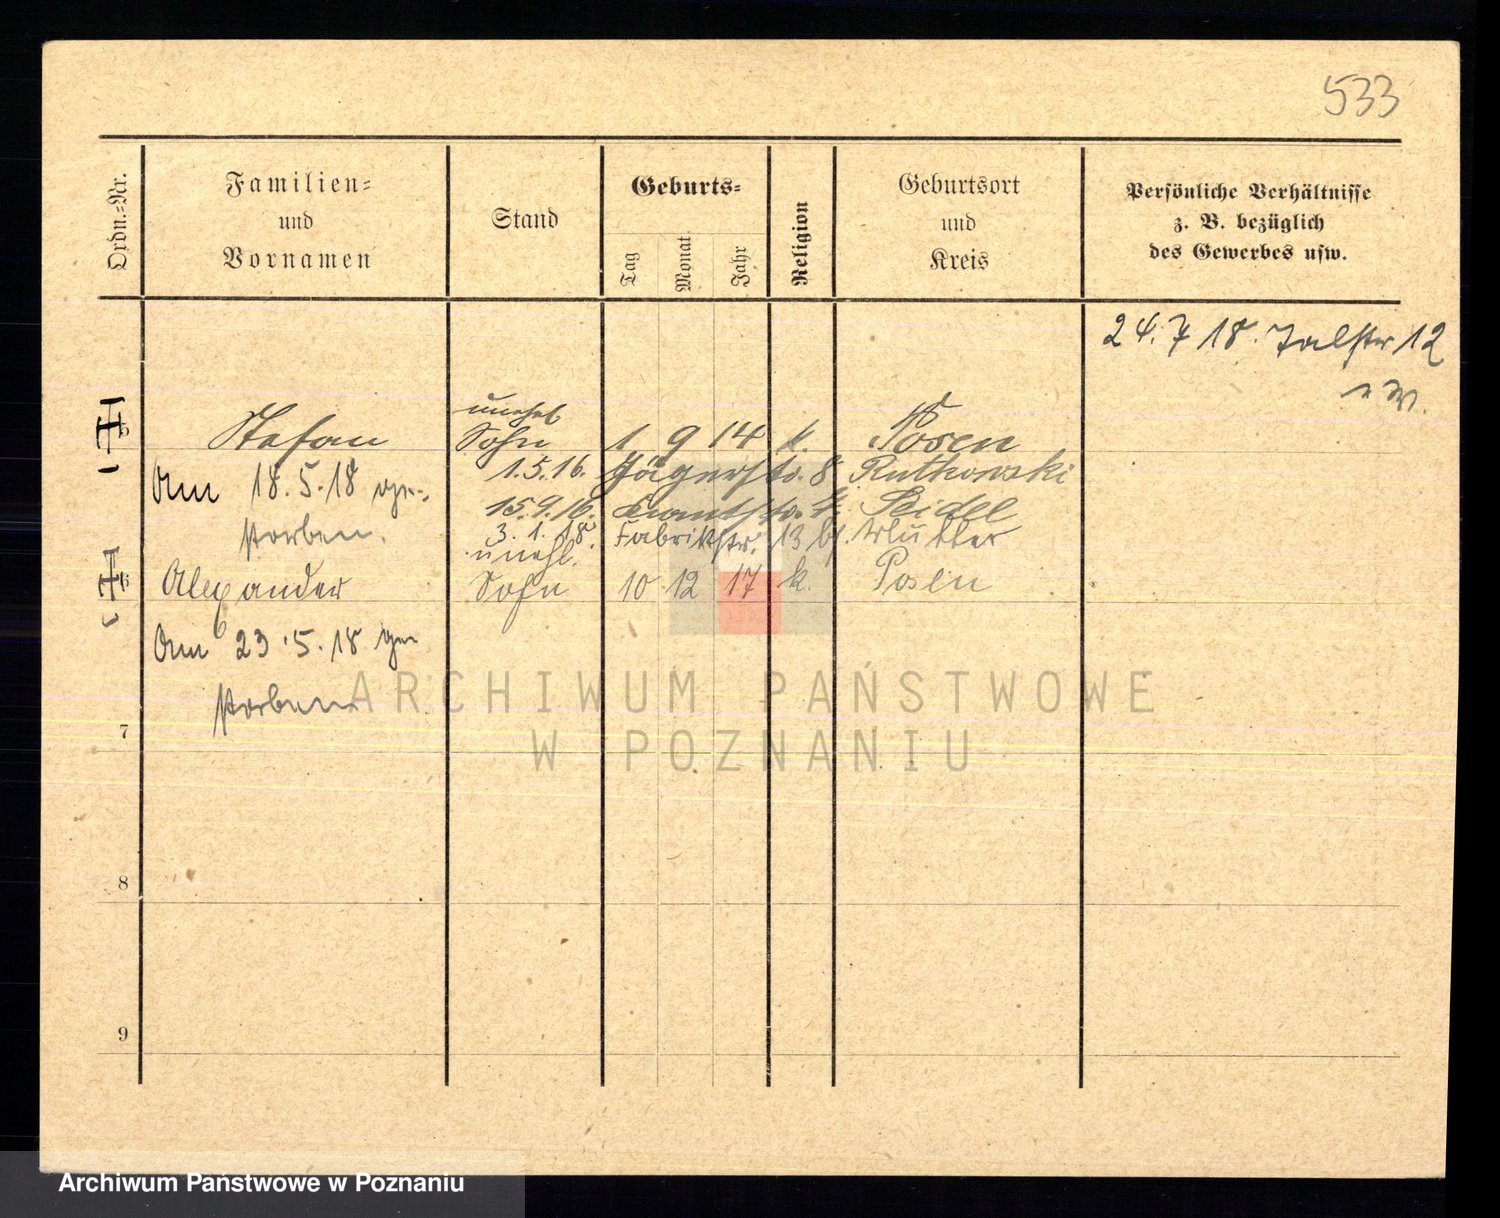 533
Ordn.-Nr.
Familien-
und
Vornamen
Stand
Geburts-
Tag
Monat
Jahr
Religion
Geburtsort
und
Kreis
Persönliche Verhältnisse
z. B. bezüglich
des Gewerbes usw.
24. 7 18. Talstr 12
unehel
5 Stefan Sohn 1 9 14 k. Posen
1.5.16. Jägerstr. 8 Rutkowski
Am 18.5.18 ge-
15.9.16. Seidel
storben. 3.1.18. Fabrikstr. 13
unehl.
6 Alexander Sohn 10 12 17 k. Posen
Am 23.5.18 ge
storben
7
8
9
ARCHIWUM PAŃSTWOWE
W POZNANIU
Archiwum Państwowe w Poznaniu